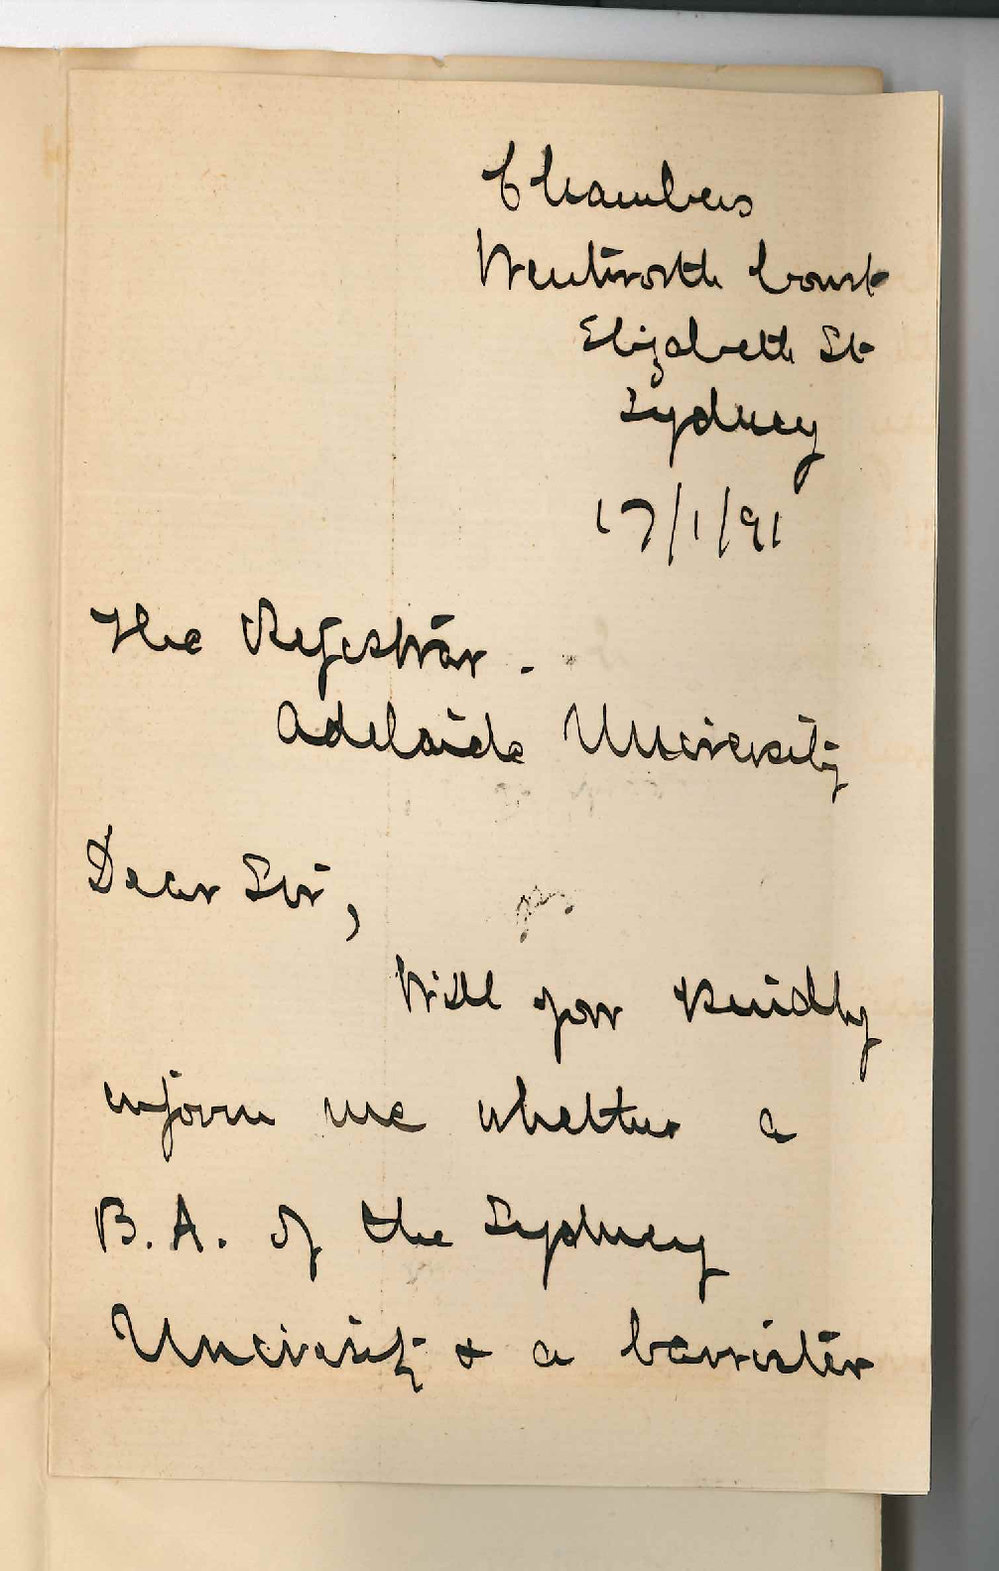 Chambers
Wentworth Court
Elizabeth St
Sydney
17/1/91
The Registrar.
Adelaide University
Dear Sir,
Will you kindly
inform me whether a
B.A. of the Sydney
University & a barrister